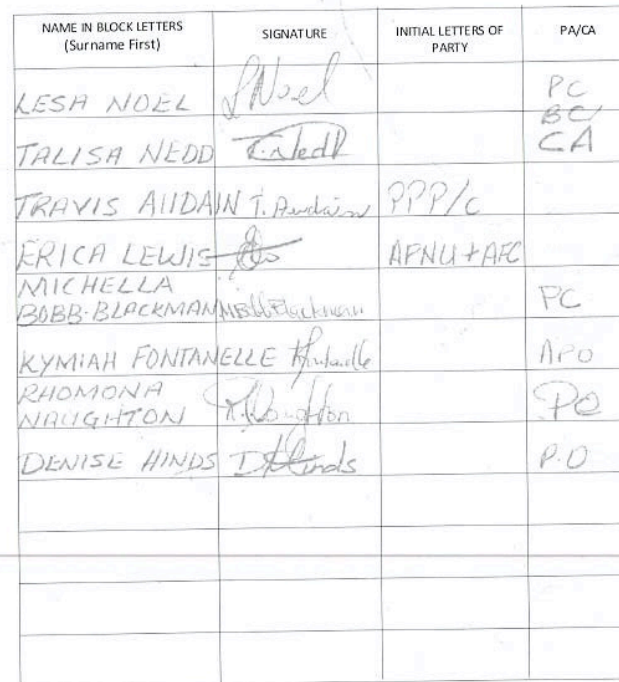 NAME IN BLOCK LETTERS
(Surname First)
SIGNATURE
INITIAL LETTERS OF
PARTY
PA/CA
LESA NOEL LNoel PC
BC/
TALISA NEDD T.Nedd CA
TRAVIS AUDAIN T. Audain PPP/C
ERICA LEWIS APNU+AFC
MICHELLA
BOBB-BLACKMAN MBobbBlackman PC
KYMIAH FONTANELLE KFontanelle APO
RHOMONA
NAUGHTON R.Naughton PO
DENISE HINDS DHinds P.O